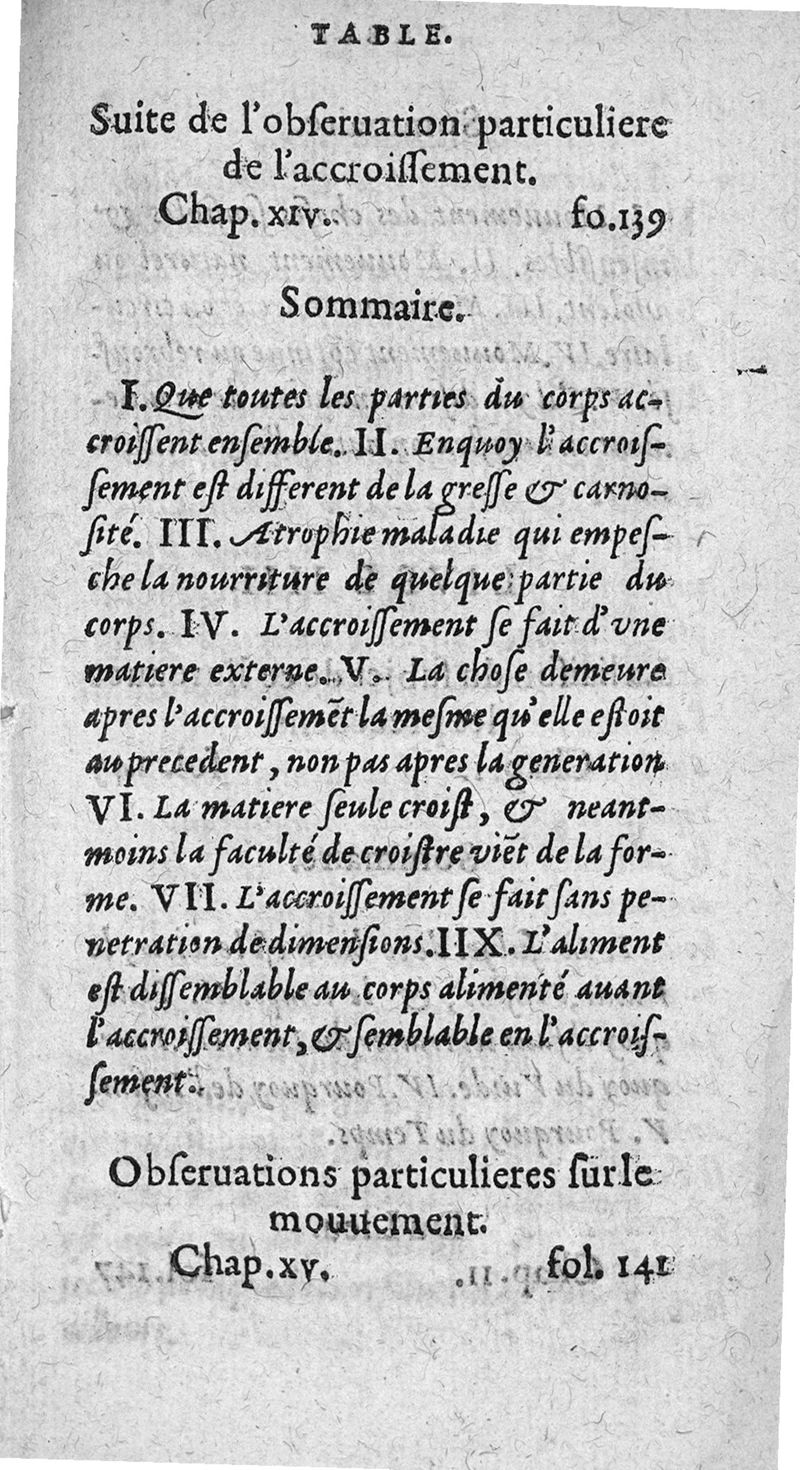 TABLE.
Suite de l'obſeruation particuliere
de l'accroiſſement.
Chap. XIV. fo.139
Sommaire.
I. Que toutes les parties du corps ac-
croiſſent enſemble. II. Enquoy l'accroiſ-
ſement eſt different de la greſſe & carno-
ſité. III. Atrophie maladie qui empeſ-
che la nourriture de quelque partie du
corps. IV. L'accroiſſement ſe fait d'vne
matiere externe. V. La choſe demeure
apres l'accroiſſemẽt la meſme qu'elle eſtoit
au precedent, non pas apres la generation
VI. La matiere ſeule croiſt, & neant-
moins la faculté de croiſtre viẽt de la for-
me. VII. L'accroiſſement ſe fait ſans pe-
netration de dimenſions. IIX. L'aliment
eſt diſſemblable au corps alimenté auant
l'accroiſſement, & ſemblable en l'accroiſ-
ſement.
Obſeruations particulieres ſur le
mouuement.
Chap. XV. fol. 141